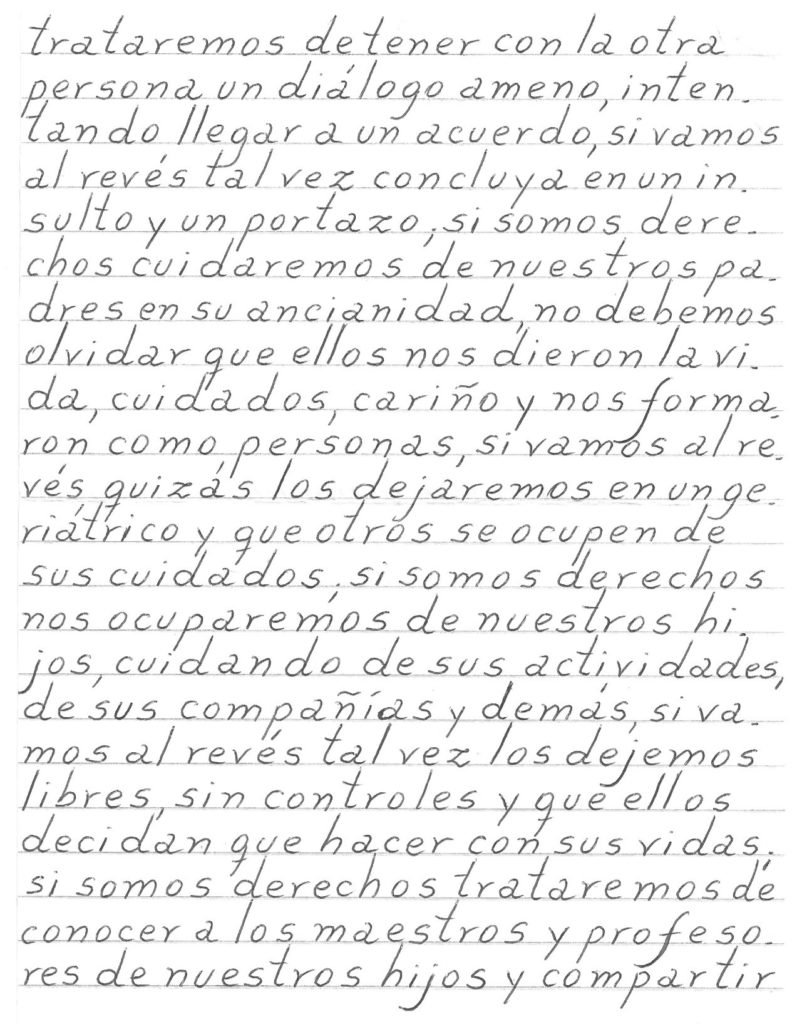 trataremos de tener con la otra
persona un diálogo ameno, inten-
tando llegar a un acuerdo, si vamos
al revés tal vez concluya en un in-
sulto y un portazo; si somos dere-
chos cuidaremos de nuestros pa-
dres en su ancianidad, no debemos
olvidar que ellos nos dieron la vi-
da, cuidados, cariño y nos forma-
ron como personas, si vamos al re-
vés quizás los dejaremos en un ge-
riátrico y que otros se ocupen de
sus cuidados; si somos derechos
nos ocuparemos de nuestros hi-
jos, cuidando de sus actividades,
de sus compañías y demás, si va-
mos al revés tal vez los dejemos
libres, sin controles y que ellos
decidan que hacer con sus vidas;
si somos derechos trataremos de
conocer a los maestros y profeso-
res de nuestros hijos y compartir